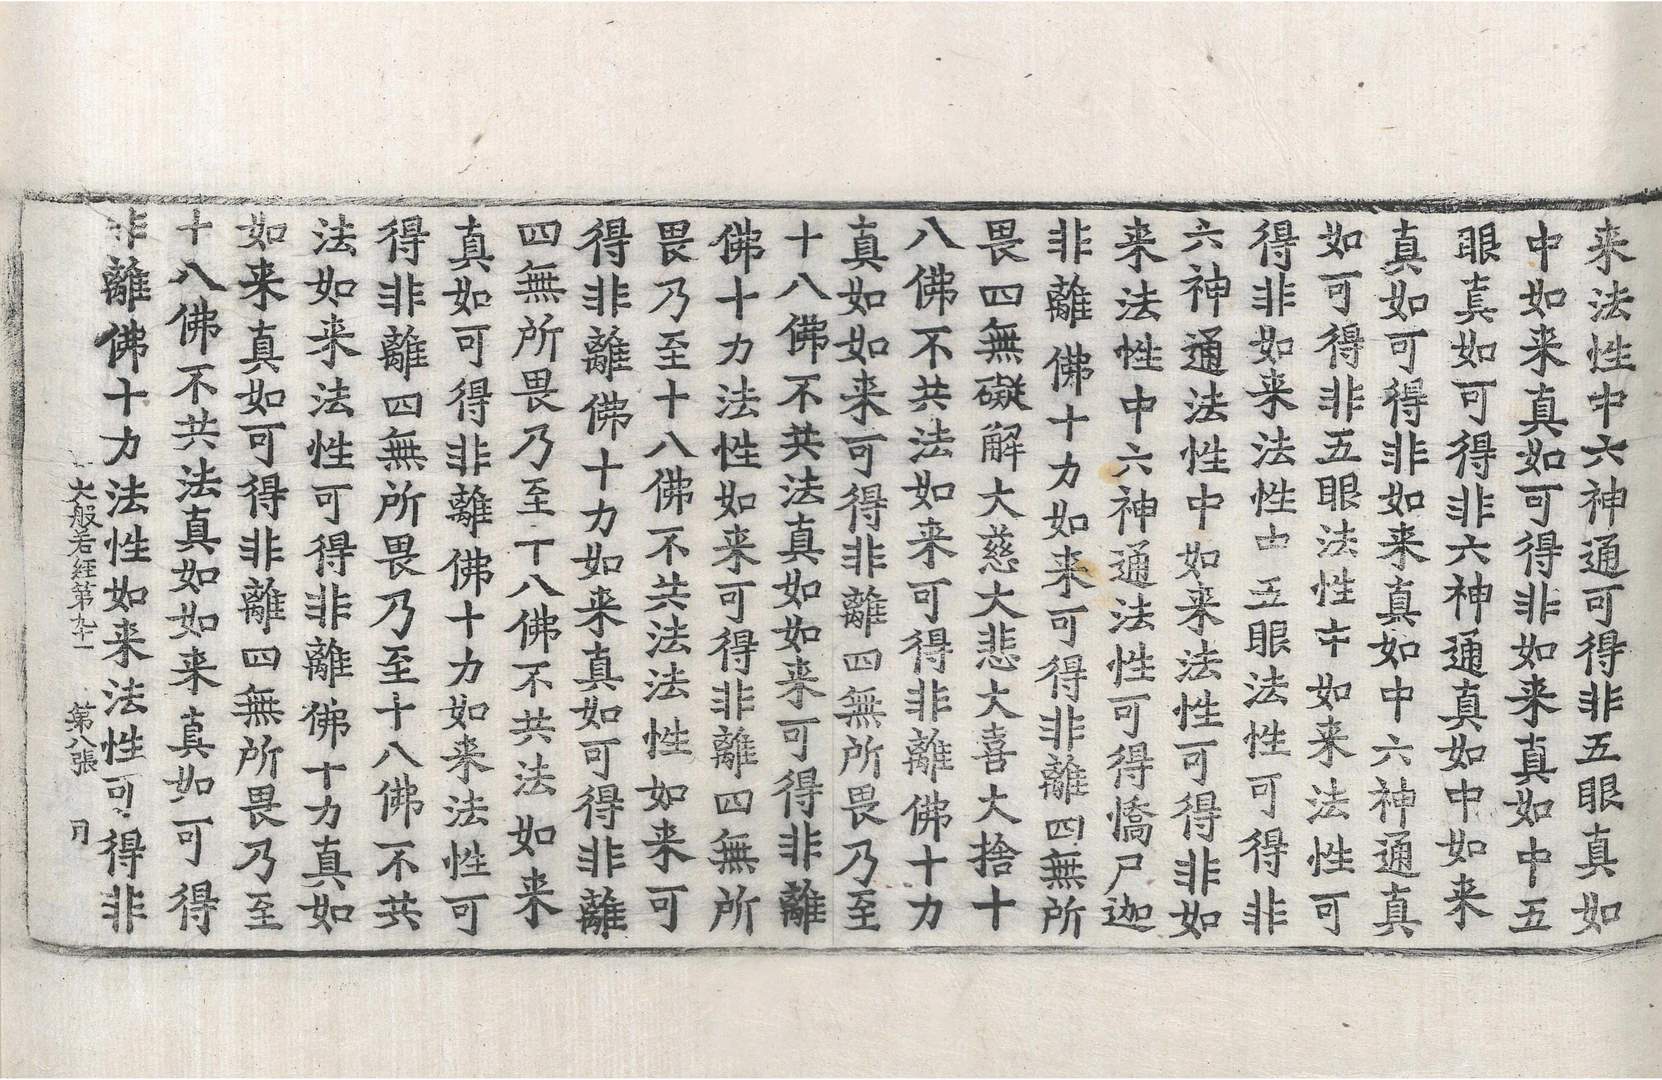 来法性中六神通可得非五眼真如
中如来真如可得非如来真如中五
眼真如可得非六神通真如中如来
真如可得非如来真如中六神通真
如可得非五眼法性中如来法性可
得非如来法性中五眼法性可得非
六神通法性中如来法性可得非如
来法性中六神通法性可得憍尸迦
非離佛十力如来可得非離四無所
畏四無礙解大慈大悲大喜大捨十
八佛不共法如来可得非離佛十力
真如如来可得非離四無所畏乃至
十八佛不共法真如如来可得非離
佛十力法性如来可得非離四無所
畏乃至十八佛不共法法性如来可
得非離佛十力如来真如可得非離
四無所畏乃至十八佛不共法如来
真如可得非離佛十力如来法性可
得非離四無所畏乃至十八佛不共
法如来法性可得非離佛十力真如
如来真如可得非離四無所畏乃至
十八佛不共法真如如来真如可得
非離佛十力法性如来法性可得非
大般若経第九十一 第八張